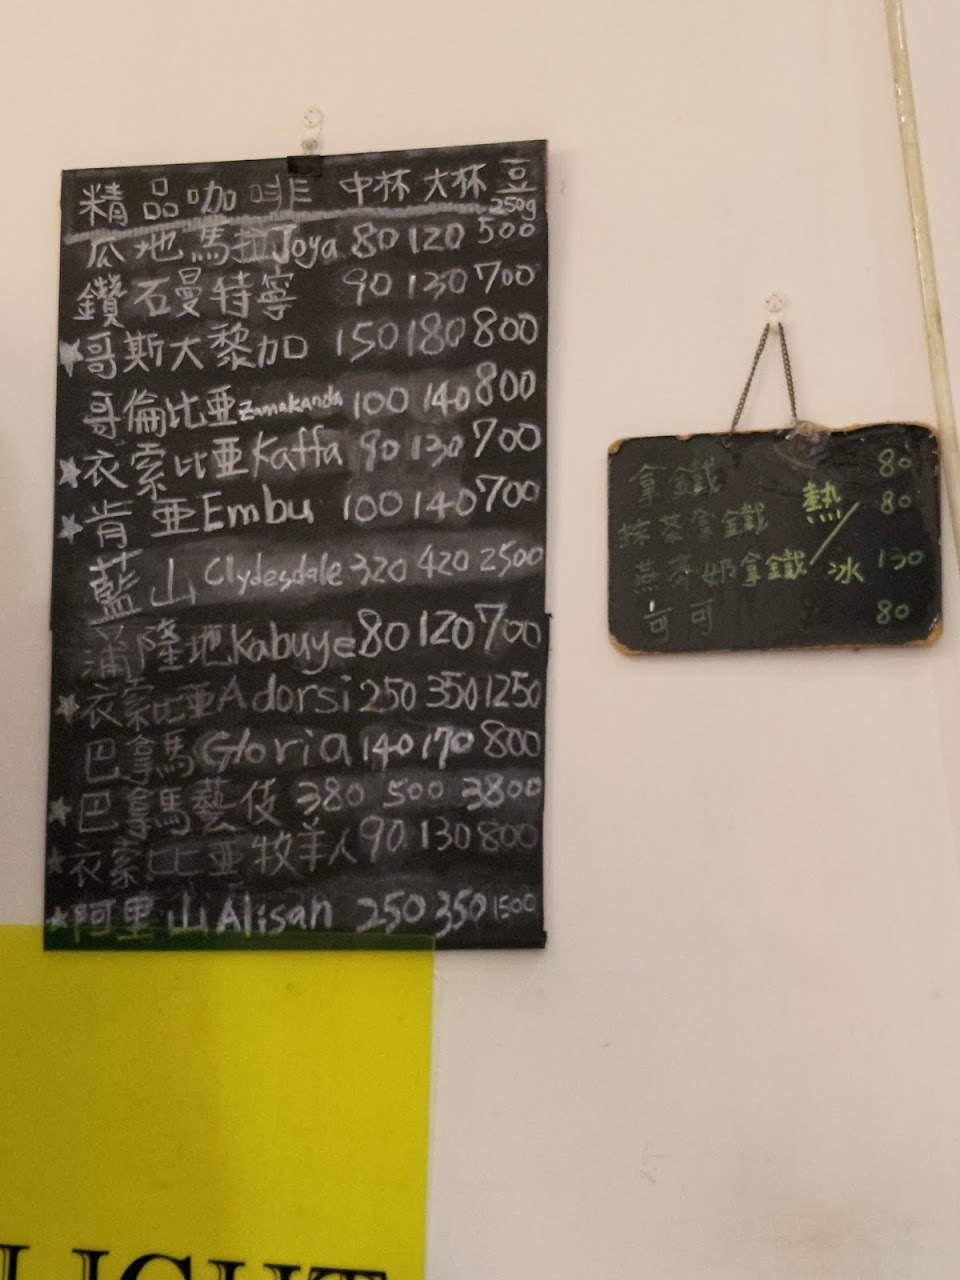 精品咖啡 中杯 大杯 豆
250g
瓜地馬拉Joya 80 120 500
鑽石曼特寧 90 130 700
★哥斯大黎加 150 180 800
哥倫比亞Zamakanda 100 140 800
★衣索比亞Kaffa 90 130 700
★肯亞Embu 100 140 700
藍山Clydesdale 320 420 2500
蒲隆地Kabuye 80 120 700
★衣索比亞Adorsi 250 350 1250
巴拿馬Gloria 140 170 800
★巴拿馬藝伎 380 500 3800
★衣索比亞牧羊人 90 130 800
★阿里山Alisan 250 350 1500
拿鐵 80
抹茶拿鐵 熱/冰 80
燕麥奶拿鐵 130
可可 80
LIGHT